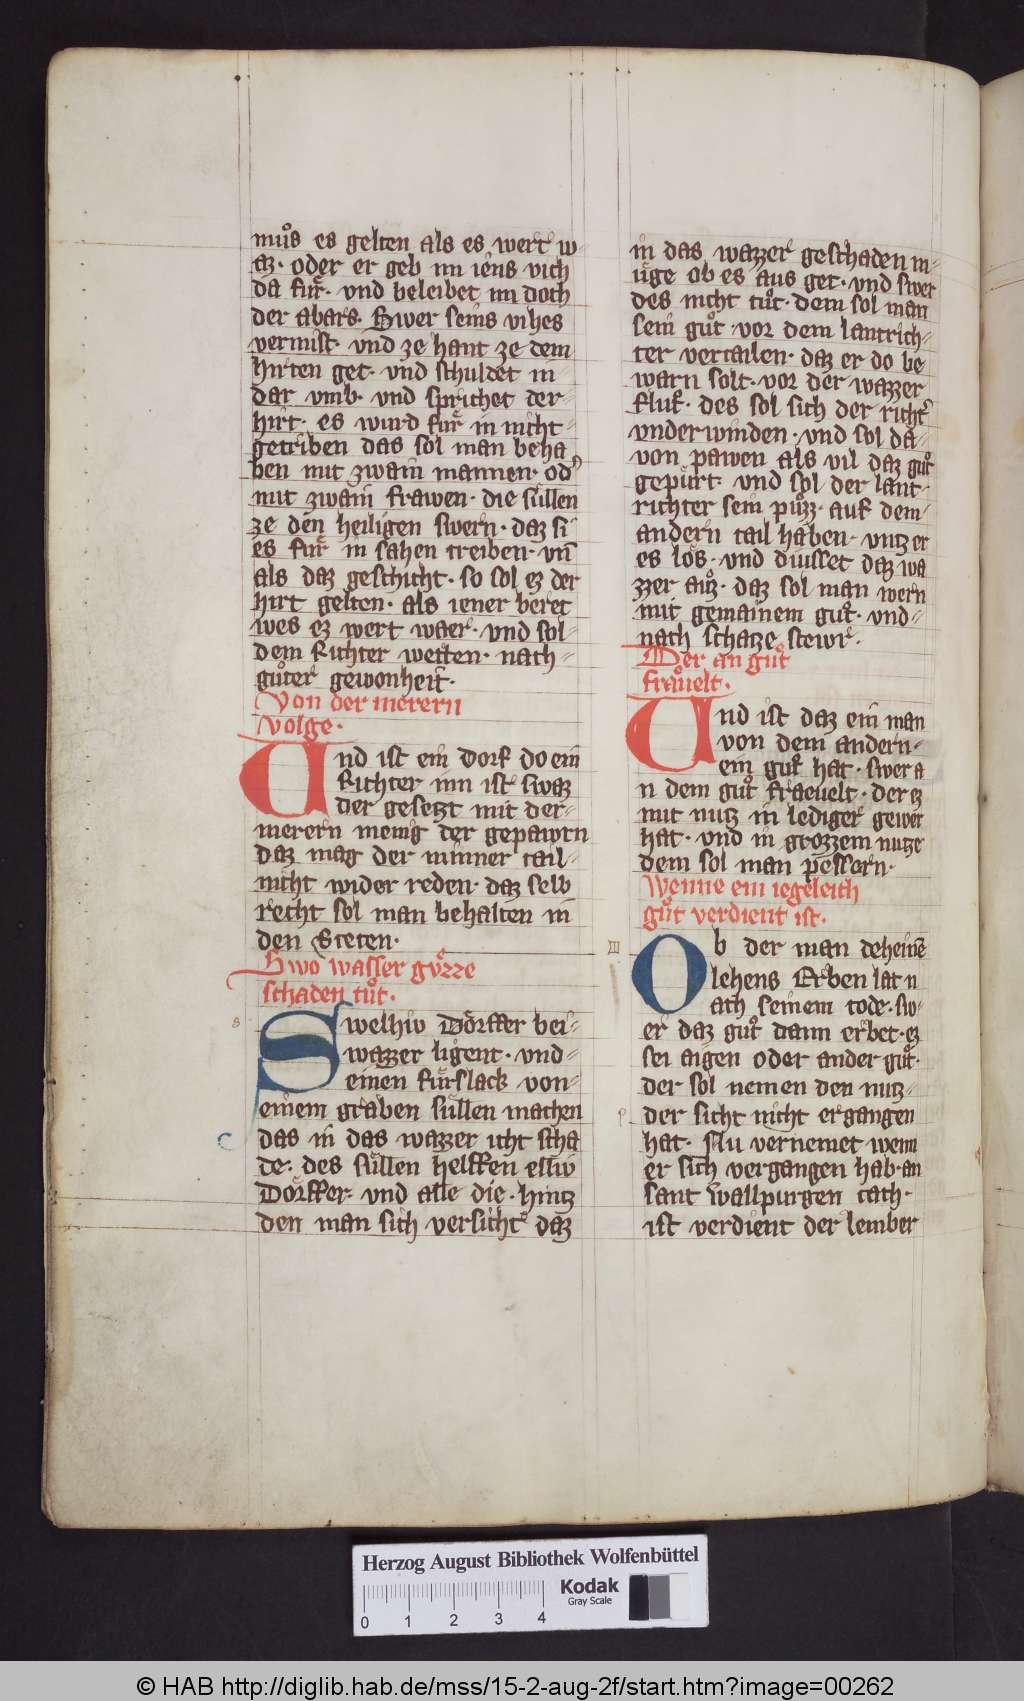 muͦs es gelten als es wert w⸗
az· oder er geb im iens vich
da fuͤr· vnd beleibet im doch
der abars· Swer seins vihes
vermist· vnd ze hant ze dem
hirten get· vnd schuldet in⸗
dar vmb· vnd sprichet der⸗
hirt· es wurd fuͤr in nicht⸗
getriben das sol man beha
ben mit zwain mannen· od'
mit zwain frawen· die suͤllen
ze den heiligen swern· daz si
es fuͤr in sahen treiben· vn̄
als daz geschicht· so sol ez der
hirt gelten· als iener beret
wes ez wert waer· vnd sol⸗
dem Richter wetten· nach⸗
guͦter gewonheit·
Von der merern
volge·
Und ist ein dorf do ein
Richter inn ist swaz
der gesetzt mit der⸗
merern menig der gepawrn
daz mag der minner tail⸗
nicht wider reden· daz selb
recht sol man behalten in
den Steten·
Swo wasser guͦzze
schaden tuͦt·
Swelhiv Doͤrffer bei⸗
wazzer ligent· vnd⸗
einen fuͤrslack von⸗
einem graben suͤllen machen
das in das wazzer icht scha
de: des suͤllen helffen elliv
Doͤrffer· vnd alle die· hintz
den man sich versicht daz
in das wazzer geschaden m⸗
uͤge ob es aus get· vnd swer
des nicht tuͦt· dem sol man
sein guͦt vor dem lantrich⸗
ter vertailen· daz er do be
warn solt· vor der wazzer
fluz· des sol sich der richt'
vnderwinden· vnd sol da⸗
von pawen als vil daz guͦt
gepuͤrt· vnd sol der lant⸗
richter sein puͦzz· auf dem⸗
andern tail haben· vntz er
es loͤs· vnd diusset daz wa
zzer auz· daz sol man wern
mit gemainem guͦt· vnd⸗
nach schatze stewr·
Der an guͦt
fraͤuelt·
Und ist daz ein man
von dem andern⸗
ein guͦt hat· swer a
n dem guͦt fraeuelt· der ez
mit nutz in lediger gewer
hat· vnd in grozzem nutze
dem sol man pessern·
Wenne ein iegeleich
guͦt verdient ist·
III
Ob der man deheinē
lehens Erben lat n
ach seinem tode· sw⸗
er daz guͦt dann erbet· ez
sei aigen oder ander guͦt·
der sol nemen den nutz⸗
der sicht nicht ergangen
hat· Nu vernemet wenn
er sich vergangen hab· an
sant wallpurgen tach·
ist verdient der lember
Herzog August Bibliothek Wolfenbüttel
0 1 2 3 4
Kodak
Gray Scale
© HAB http://diglib.hab.de/mss/15-2-aug-2f/start.htm?image=00262